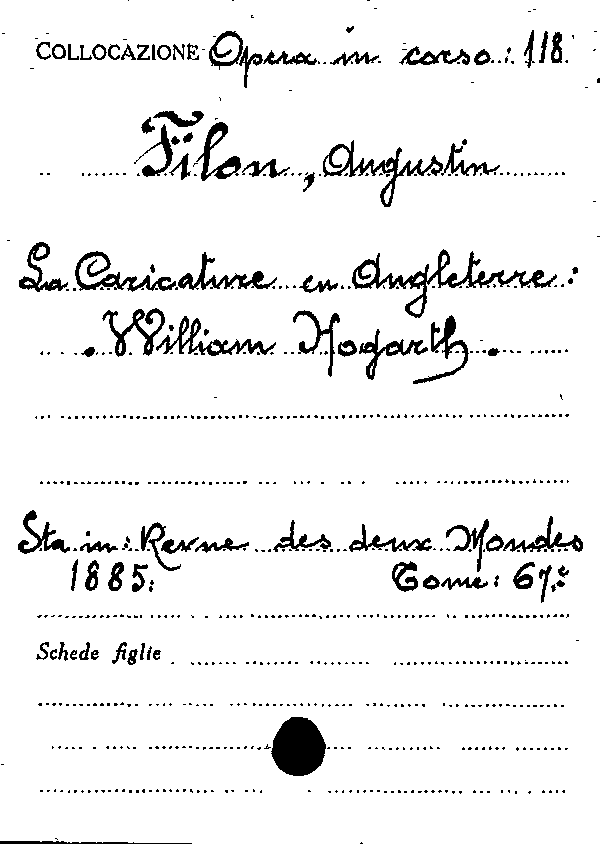 COLLOCAZIONE Opera in corso: 118.
Filon, Augustin
La Caricature en Angleterre:
. William Hogarth.
Sta in: Revue des deux Mondes
1885: Tome: 67.e
Schede figlie